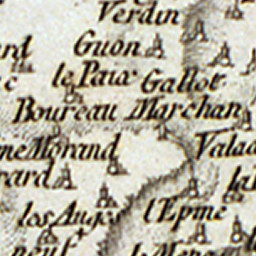 Verdin
Guon
le Paux Gallot
Boureau Marchan
Morand
Valad
rard
los Anges l'Epine
neuf